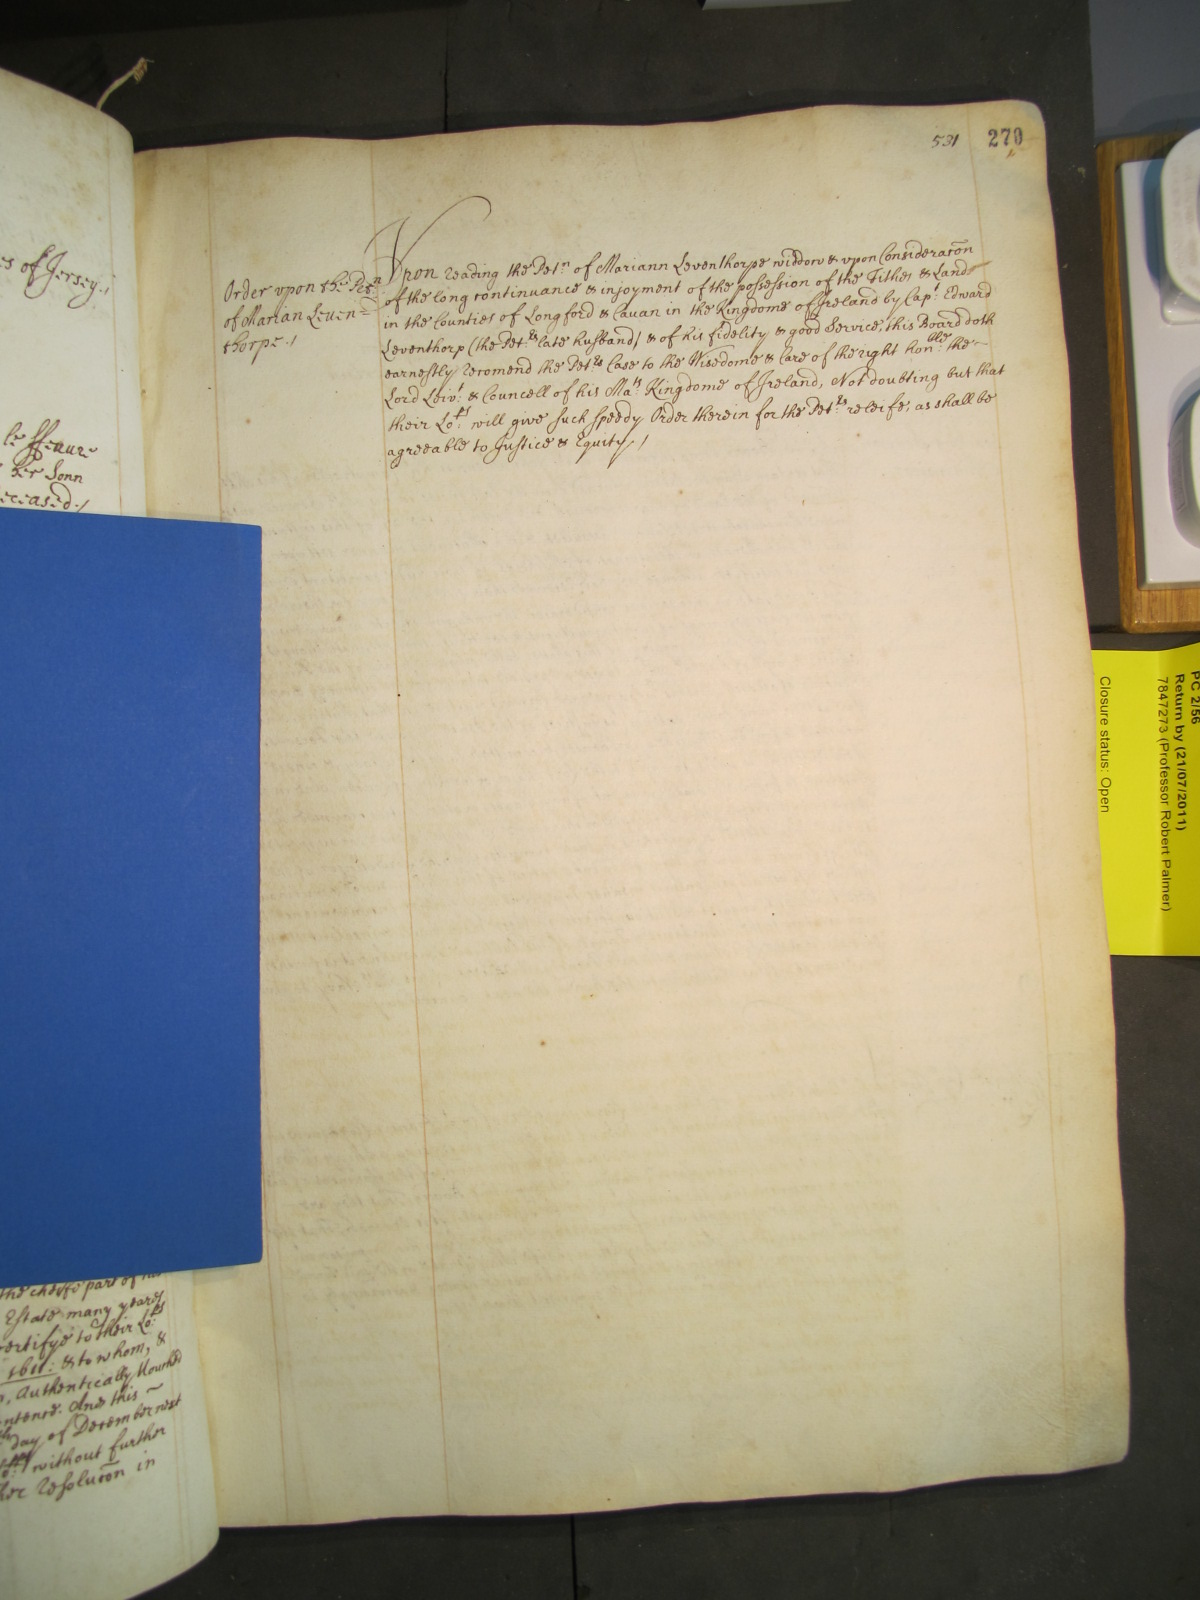 531 270
Order vpon the Petn
of Marian Leuen=
thorpe./
Vpon reading the Petn of Mariann Leventhorpe widdow & vpon Consideracōn
of the long continuance & injoyment of the possession of the Tithes & Land
in the Counties of Longford & Cavan in the Kingdome of Ireland by Capt Edward
Leventhorp (the Petrs late husband) & of his fidelity & good Service, this Board doth
earnestly recomend the Petrs Case to the Wisedome & Care of the right honble the
Lord Leivt & Councell of his Mats Kingdome of Ireland, Not doubting but that
their Lops will give such speedy Order therein for the Petrs releife, as shall be
agreeable to Justice & Equity./
es of Jersey./
her Sonn
eceased./
the cheife part of his
Estate many yeares
certifye to their Lops
1611: & to whom, &
Authentically Vouched
ntence. And this
day of December next
without further
Resolucōn in
PC 2/56
Return by (21/07/2011)
7847273 (Professor Robert Palmer)
Closure status: Open